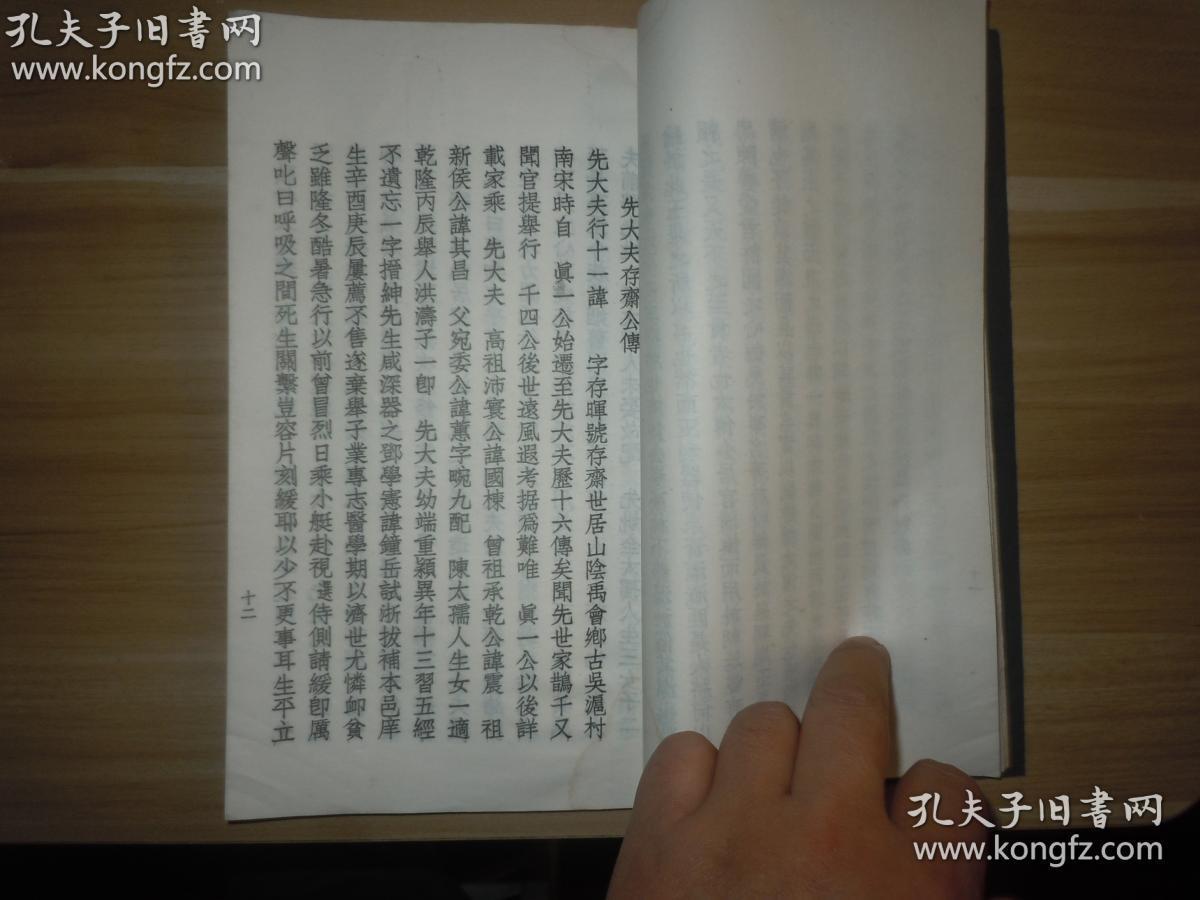 孔夫子旧书网
www.kongfz.com
先大夫存齋公傳
先大夫行十一諱 字存暉號存齋世居山陰禹會鄉古吳滬村
南宋時自 眞一公始遷至先大夫歷十六傳矣聞先世家鵲千又
聞官提舉行 千四公後世遠風遐考据爲難唯 眞一公以後詳
載家乘 先大夫 高祖沛寰公諱國棟 曾祖承乾公諱震 祖
新侯公諱其昌 父宛委公諱蕙字畹九配 陳太孺人生女一適
乾隆丙辰舉人洪濤子一卽 先大夫幼端重穎異年十三習五經
不遺忘一字搢紳先生咸深器之鄧學憲諱鐘岳試浙拔補本邑庠
生辛酉庚辰屢薦不售遂棄舉子業專志醫學期以濟世尤憐卹貧
乏雖隆冬酷暑急行以前曾冒烈日乘小艇赴視 侍側請緩卽厲
聲叱曰呼吸之間死生關繫豈容片刻緩耶以少不更事耳生平立
十二
孔夫子旧书网
www.kongfz.com